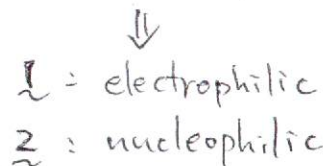 ⇓
1 : electrophilic
2 : nucleophilic